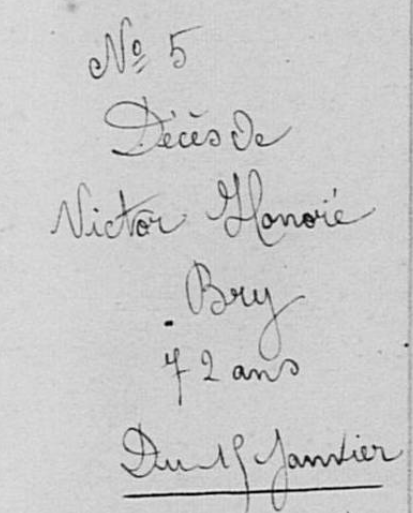 Nº 5
Décès de
Victor Honoré
Bry
72 ans
Du 15 Janvier